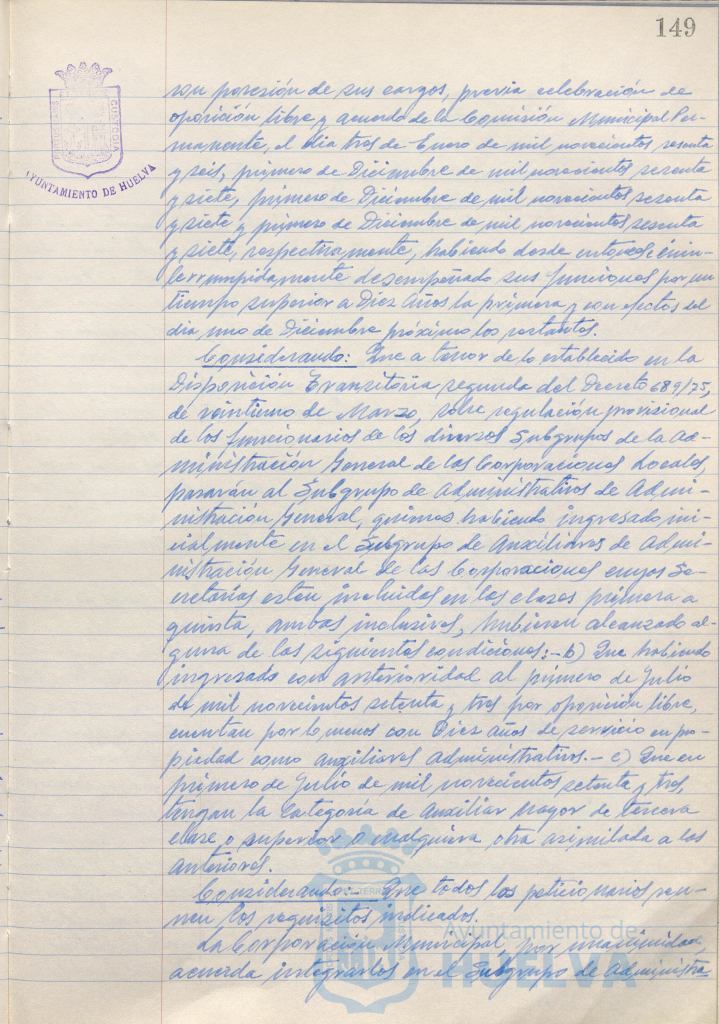 149
AYUNTAMIENTO DE HUELVA
ron posesión de sus cargos, previa celebración de
oposición libre y acuerdo de la Comisión Municipal Per-
manente, el dia tres de Enero de mil novecientos sesenta
y seis, primero de Diciembre de mil novecientos sesenta
y siete, primero de Diciembre de mil novecientos sesenta
y siete y primero de Diciembre de mil novecientos sesenta
y siete, respectivamente, habiendo desde entonces é inin-
terrumpidamente desempeñado sus funciones por un
tiempo superior a Diez Años la primera y con efectos del
dia, uno de Diciembre próximo los restantes.
Considerando: Que a tenor de lo establecido en la
Disposición Transitoria segunda del Decreto 689/75,
de veintiuno de Marzo, sobre regulación provisional
de los funcionarios de los diversos Subgrupos de la Ad-
ministración General de las Corporaciones Locales,
pasarán al Subgrupo de Administrativos de Admi-
nistración General, quienes habiendo ingresado ini-
cialmente en el Subgrupo de Auxiliares de Admi-
nistración General de las Corporaciones cuyas Se-
cretarías estén incluidas en las clases primera a
quinta, ambas inclusives, hubiesen alcanzado al-
guna de las siguientes condiciones:- b) Que habiendo
ingresado con anterioridad al primero de Julio
de mil novecientos setenta y tres por oposición libre,
cuentan por lo menos con Diez años de servicio en pro-
piedad como auxiliares administrativos.- c) Que en
primero de Julio de mil novecientos setenta y tres,
tengan la Categoría de Auxiliar Mayor de tercera
clase o superior o cualquiera otra asimilada a las
anteriores.
Considerando:- Que todos los peticionarios reu-
nen los requisitos indicados.
La Corporación Municipal por unanimidad,
acuerda integrarlos en el Subgrupo de Administra-
Ayuntamiento de
HUELVA